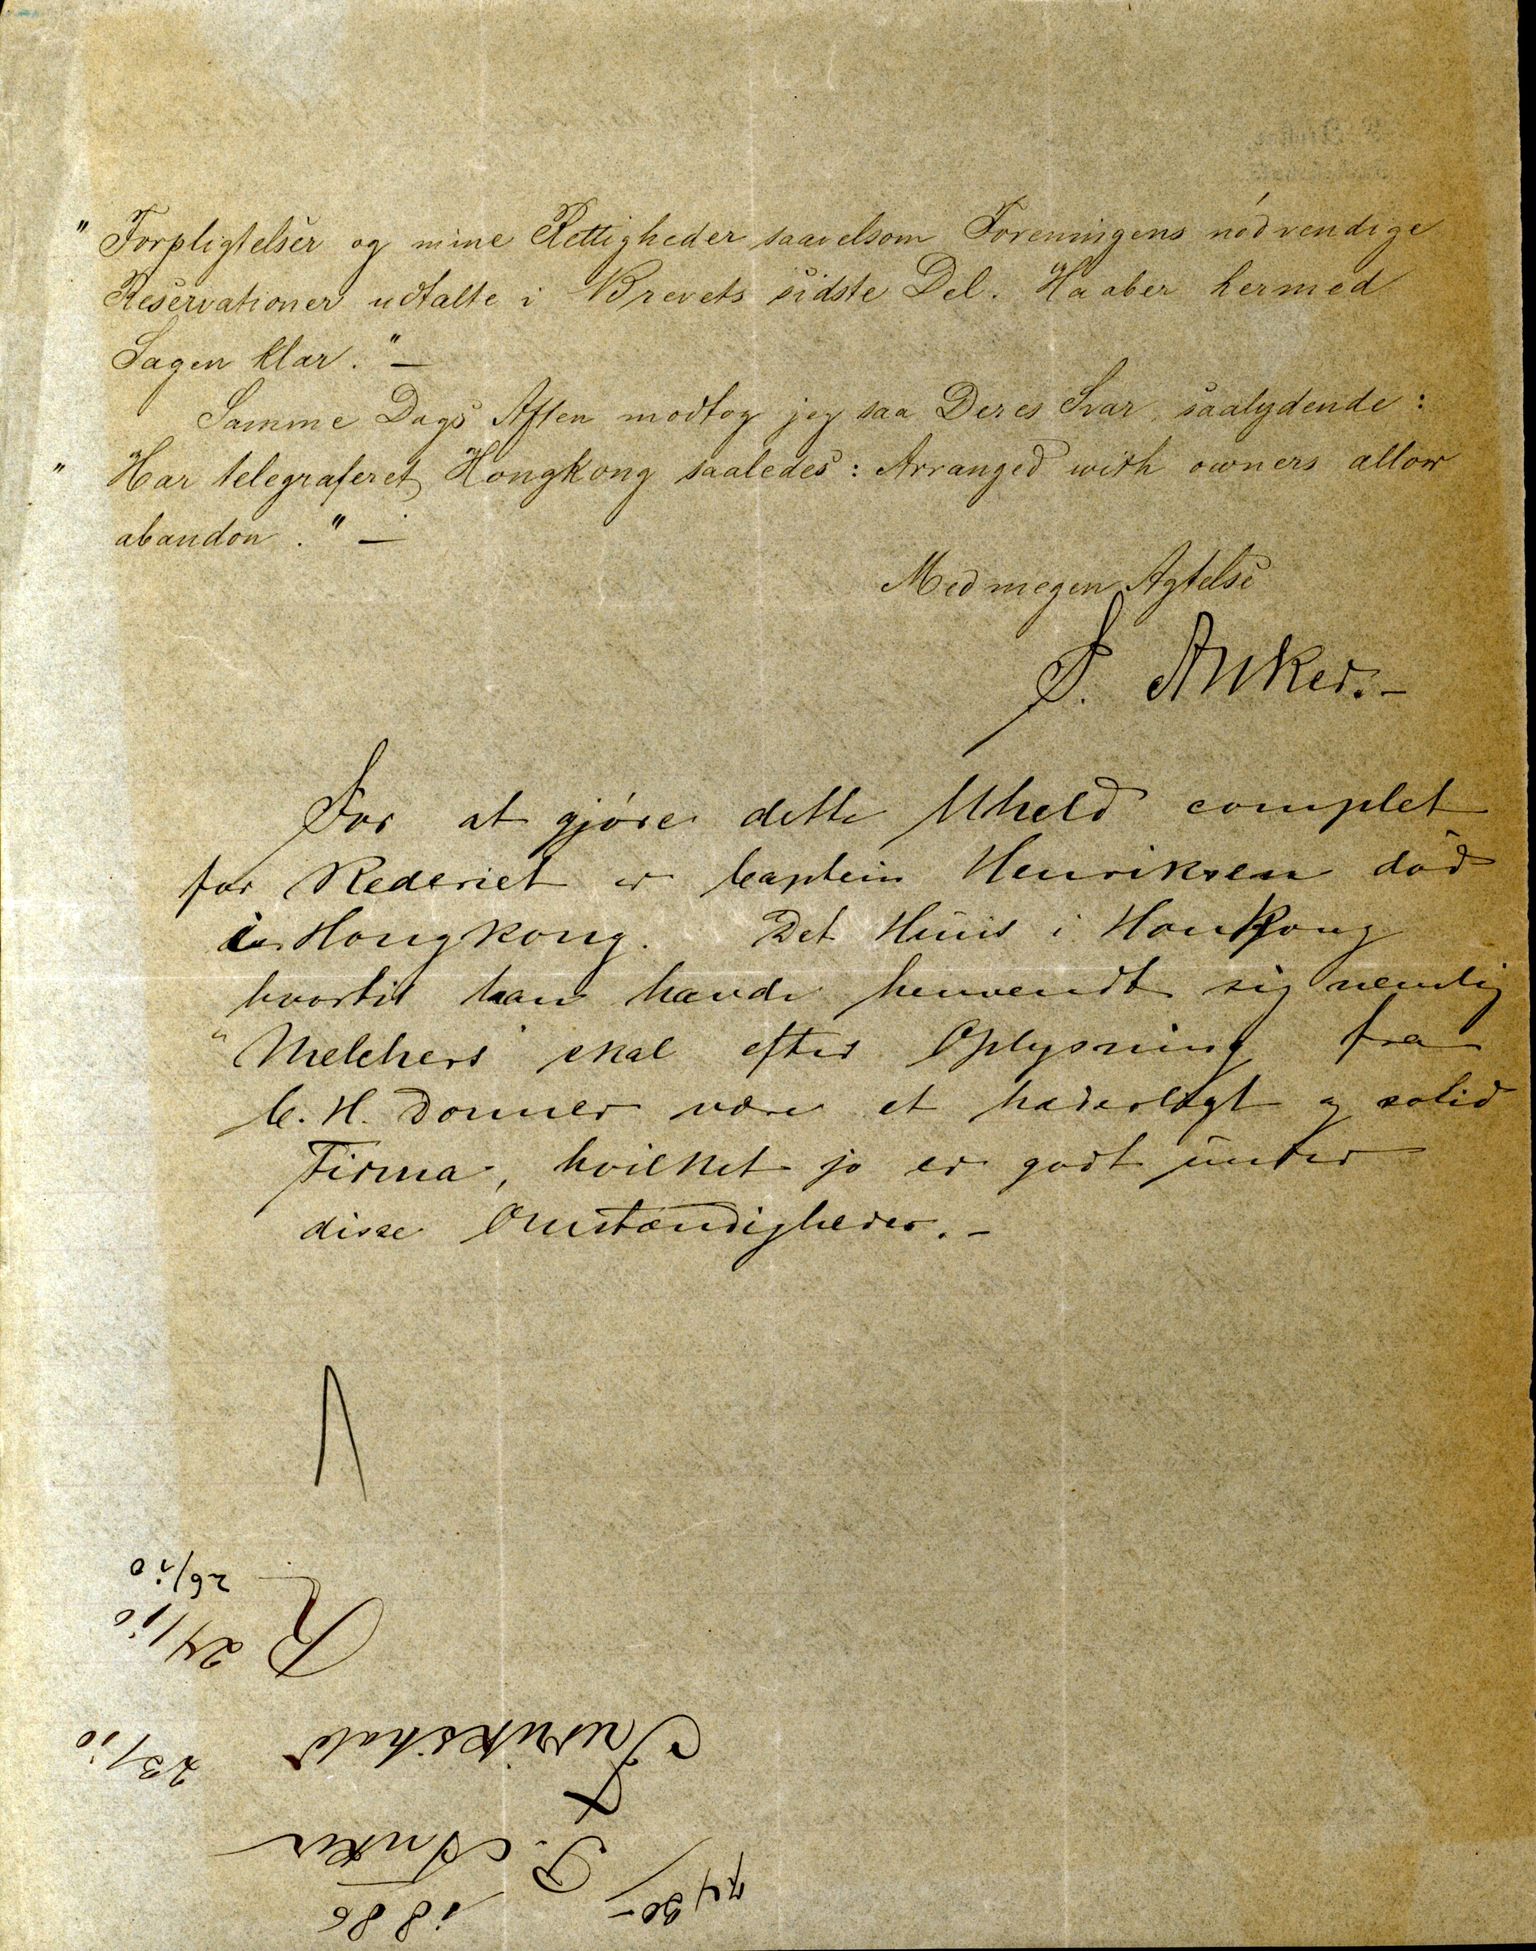 " Forpligtelser og mine Rettigheder saavelsom Foreningens nödvendige
Reservationer udtalte i Brevets sidste Del. Haaber hermed
Sagen klar." —
Samme Dags Aften modtog jeg saa Deres Svar saalydende:
" Har telegraferet Hongkong saaledes: Arranged with owners allow
abandon." —
Med megen Agtelse
P. Anker. —
For at gjöre dette Uheld complet
for Rederiet er Captein Henriksen död
i Hongkong. Det Huus i Honkong
hvortil han havde henvendt sig nemlig
"Melchers" skal efter Oplysning fra
C. H. Donner være et hæderligt og solid
Firma, hvilket jo er godt under
disse Omstændigheder. —
1886
P. Anker
Fredrikshald 23/10
R 24/10
26/10